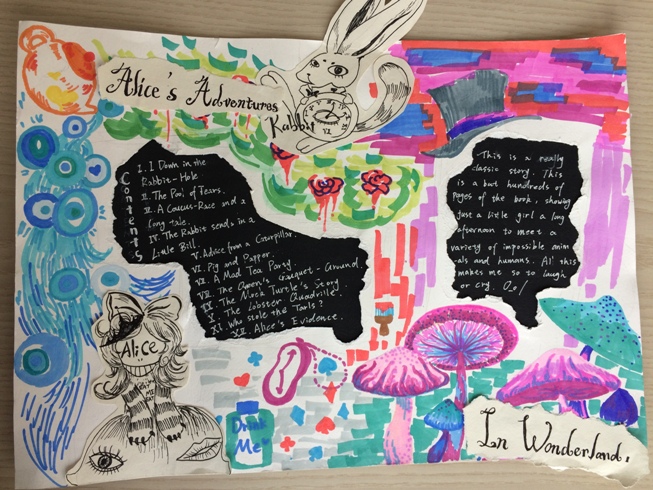 Alice's Adventures
Rabbit
Contents
I. I Down in the
Rabbit-Hole
II. The Pool of Tears.
III. A Caucus-Race and a
long tale.
IV. The Rabbit sends in a
Little Bill.
V. Advice from a Caterpillar.
VI. Pig and Pepper.
VII. A Mad Tea Party.
VIII. The Queen's Croquet-Ground.
IX The Mock Turtle's Story
X The Lobster Quadrille.
XI. Who stole the Tarts?
XII. Alice's Evidence.
This is a really
classic story. This
is a but hundreds of
pages of the book, showing
just a little girl a long
afternoon to meet a
variety of impossible anim
als and humans. All this
makes me so to laugh
or cry.
Alice
Drink
Me
In Wonderland.